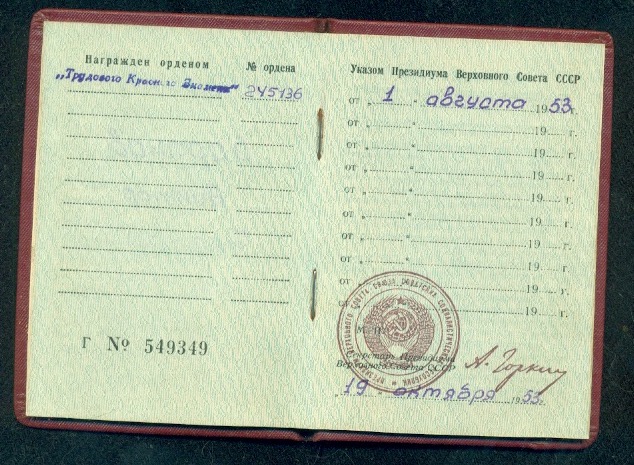 Награжден орденом
№ ордена
„Трудового Красного Знамени"
245136
Г № 549349
Указом Президиума Верховного Совета СССР
от „ 1 " августа 1953 г.
от „ " 19 г.
от „ " 19 г.
от „ " 19 г.
от „ " 19 г.
от „ " 19 г.
от „ " 19 г.
от „ " 19 г.
от „ " 19 г.
от „ " 19 г.
М. П.
Секретарь Президиума
Верховного Совета СССР
А. Горкин
„ 19 " октября 1953 г.